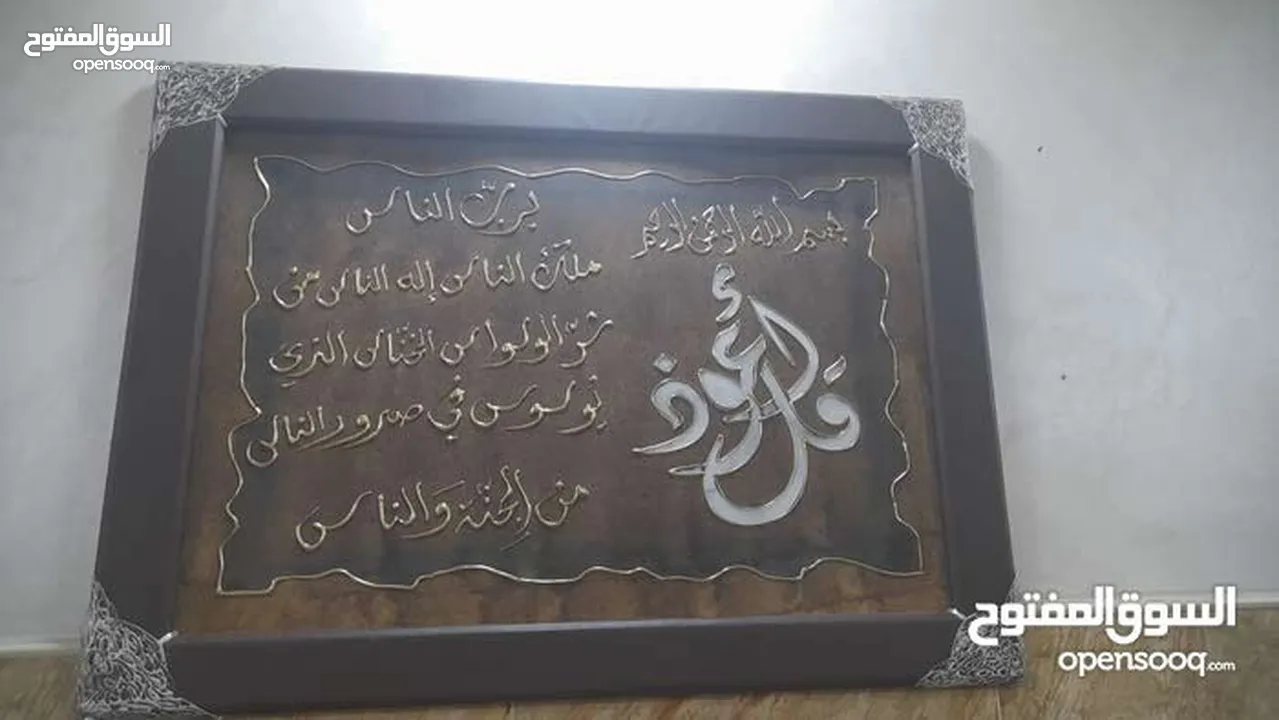 السوق المفتوح
opensooq.com
بسم الله الرحمن الرحيم
قل أعوذ
بربّ الناس
ملك الناس إله الناس من
شرّ الوسواس الخنّاس الذي
يوسوس في صدور الناس
من الجِنّة وَالناسَ
السوق المفتوح
opensooq.com